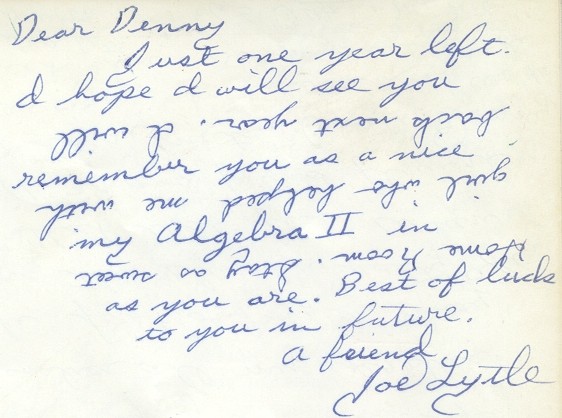 Dear Denny
Just one year left.
I hope I will see you
back next year. I will
remember you as a nice
girl who helped me with
my Algebra II in
Home Room. Stay as sweet
as you are. Best of luck
to you in future.
A friend,
Joe Lytle